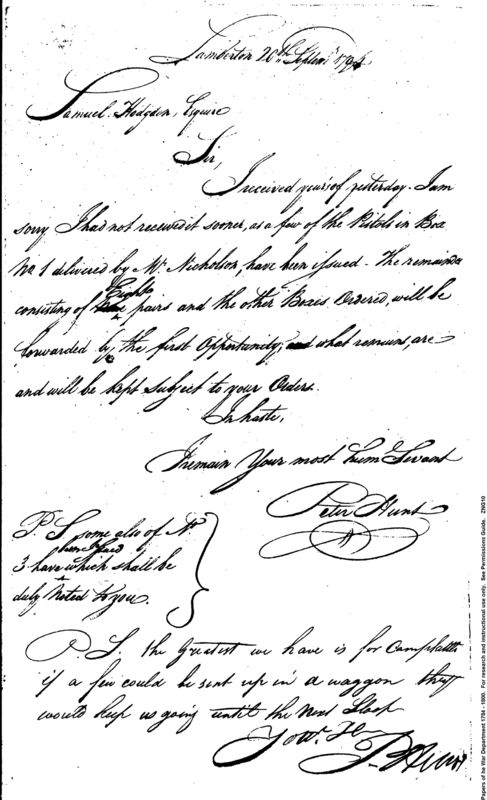 Lamberton 20th Septemr 1794
Samuel Hodgdon, Esquire
Sir,
I received your's of yesterday. I am
sorry I had not received it sooner, as a few of the Pistols in Box
No 1 delivered by Mr Nicholson, have been issued. The remainder
Eight
consisting of pairs and the other Boxes Ordered, will be
forwarded by the first Opportunity, what remains, are
and will be kept subject to your Orders.
In haste,
I remain Your most humb Servant
Peter Hunt
P.S. some also of No
been used
3 have which shall be
duly Noted to you.
P.S. the Greatest we have is for Camp kettles
if a few could be sent up in a waggon they
would keep us going until the next Sloop
Yours
P. Hunt
Papers of he War Department 1784 - 1800. For research and instructional use only. See Permissions Guide. ZNG10